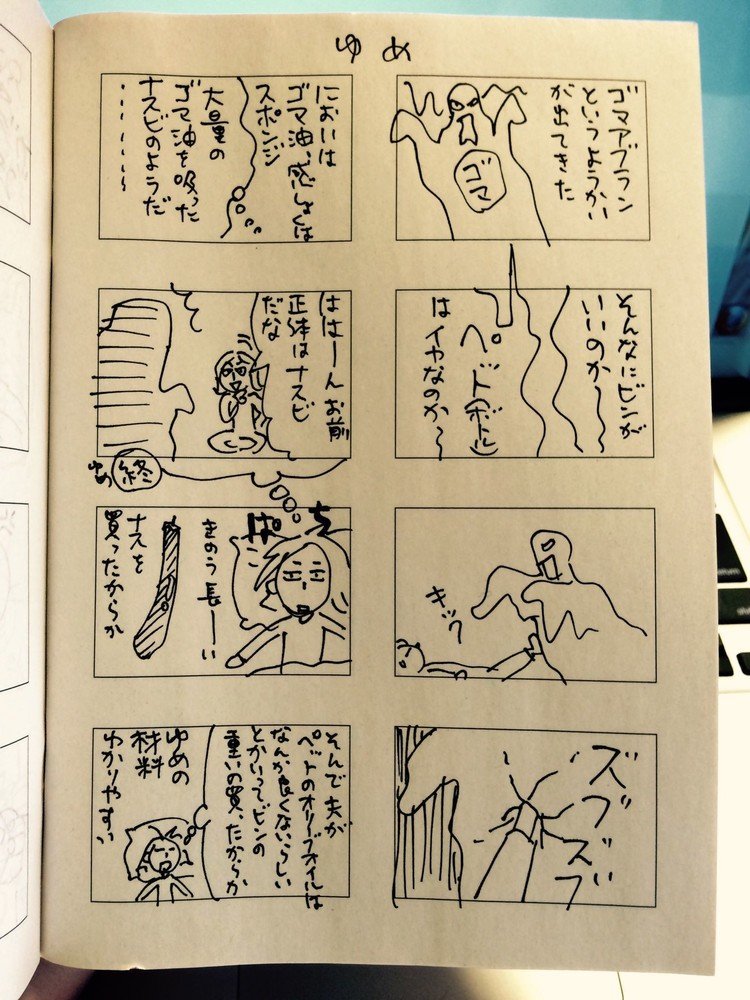 ゆめ
ゴマアブラン
というようかい
が出てきた
ゴマ
そんなにビンが
いいのか〜
ペットボトル
はイヤなのか〜
キック
ズブ
ズブ
においは
ゴマ油、感しょくは
スポンジ
大量の
ゴマ油を吸った
ナスビのようだ
ははーんお前
正体はナスビ
だな
ゆめ
終
ぱち
きのう長ーい
ナスを
買ったからか
そんで夫が
ペットのオリーブオイルは
なんか良くないらしい
とかいってビンの
重いの買ったからか
ゆめの
材料
わかりやすい